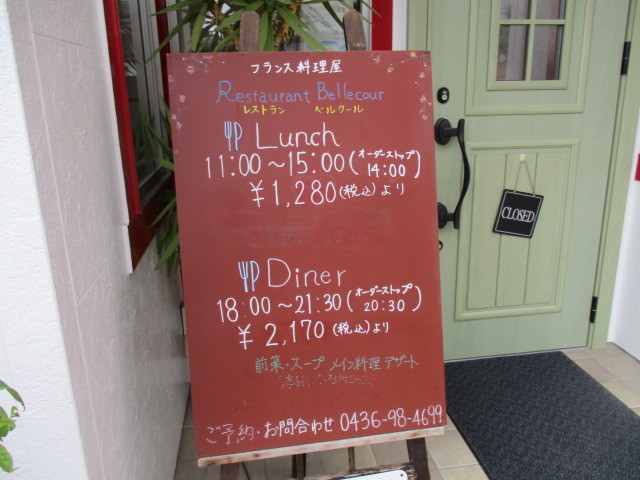 フランス料理屋
Restaurant Bellecour
レストラン ベルクール
Lunch
11:00~15:00(オーダーストップ 14:00)
¥1,280(税込)より
Diner
18:00~21:30(オーダーストップ 20:30)
¥2,170(税込)より
前菜・スープ メイン料理 デザート
ご予約・お問合わせ 0436-98-4699
CLOSED